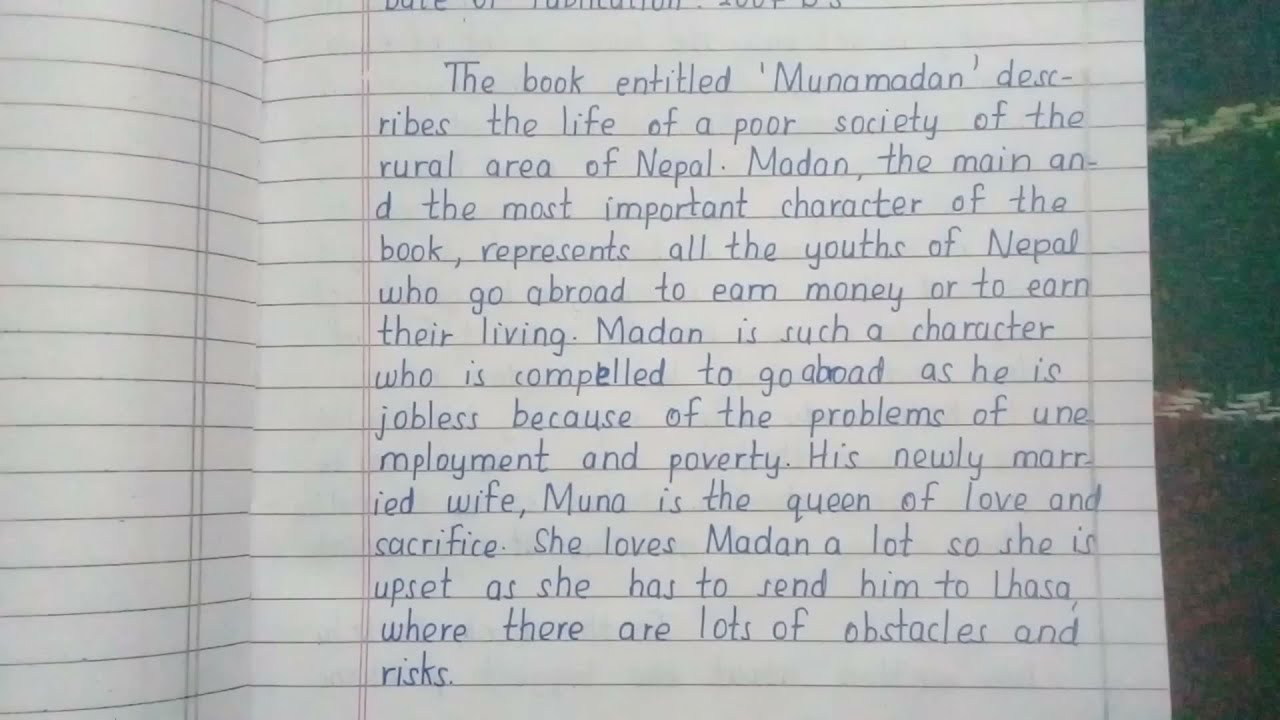 Date of Publication: 2007 B.S
The book entitled 'Munamadan' desc-
ribes the life of a poor society of the
rural area of Nepal. Madan, the main an-
d the most important character of the
book, represents all the youths of Nepal
who go abroad to earn money or to earn
their living. Madan is such a character
who is compelled to go aboad as he is
jobless because of the problems of une
mployment and poverty. His newly marr-
ied wife, Muna is the queen of love and
sacrifice. She loves Madan a lot so she is
upset as she has to send him to Lhasa,
where there are lots of obstacles and
risks.